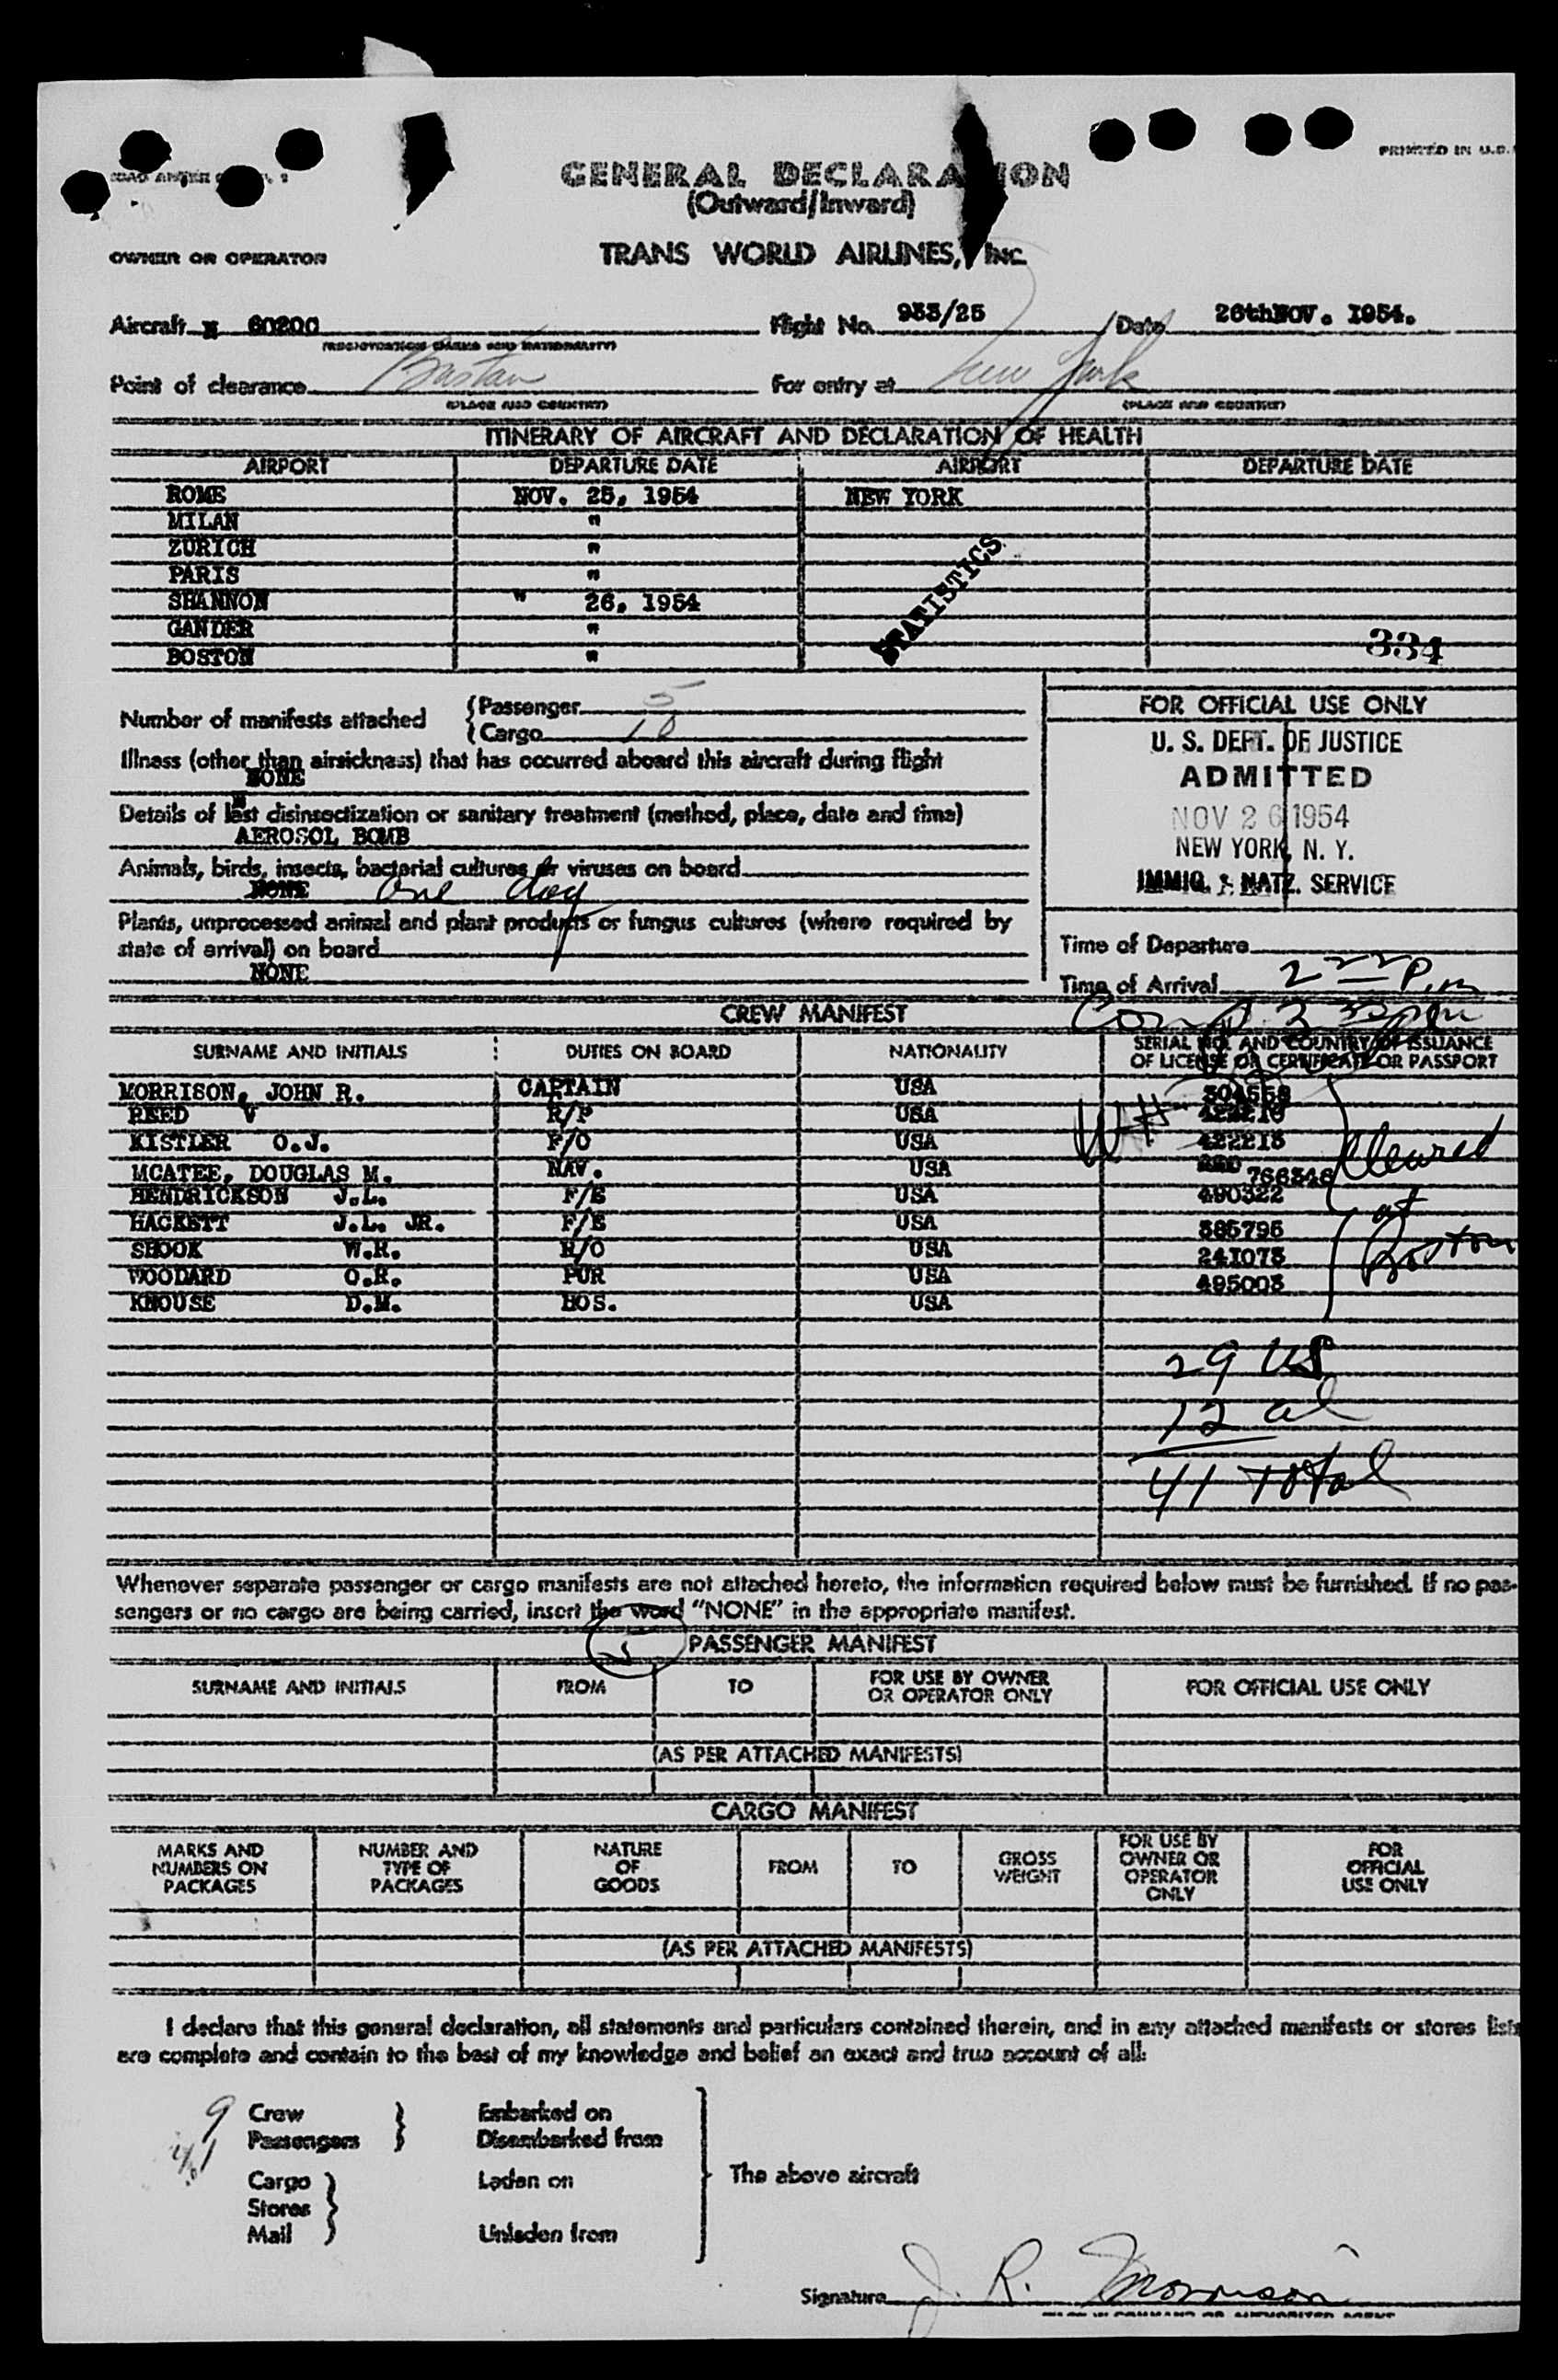 PRINTED IN U.S.
GENERAL DECLARATION
(Outward/Inward)
OWNER OR OPERATOR TRANS WORLD AIRLINES, Inc.
Aircraft N 60200 Flight No. 933/25 Date 26thNOV. 1954.
(REGISTRATION MARKS AND NATIONALITY)
Point of clearance Boston For entry at New York
(PLACE AND COUNTRY) (PLACE AND COUNTRY)
ITINERARY OF AIRCRAFT AND DECLARATION OF HEALTH
AIRPORT DEPARTURE DATE AIRPORT DEPARTURE DATE
ROME NOV. 25, 1954 NEW YORK
MILAN "
ZURICH "
PARIS "
SHANNON " 26, 1954
GANDER "
BOSTON "
STATISTICS
334
Number of manifests attached { Passenger 5
{ Cargo 10
Illness (other than airsickness) that has occurred aboard this aircraft during flight
NONE
Details of last disinsectization or sanitary treatment (method, place, date and time)
AEROSOL BOMB
Animals, birds, insects, bacterial cultures or viruses on board
NONE One dog
Plants, unprocessed animal and plant products or fungus cultures (where required by
state of arrival) on board
NONE
FOR OFFICIAL USE ONLY
U. S. DEPT. OF JUSTICE
ADMITTED
NOV 26 1954
NEW YORK, N. Y.
IMMIG. & NATZ. SERVICE
Time of Departure
Time of Arrival 2 22 P.m
Comp. 3 35 pm
CREW MANIFEST
SURNAME AND INITIALS DUTIES ON BOARD NATIONALITY SERIAL NO. AND COUNTRY OF ISSUANCE
OF LICENSE OR CERTIFICATE OR PASSPORT
MORRISON, JOHN R. CAPTAIN USA 304558
REED V R/P USA
KISTLER O.J. F/O USA 422213
MCATEE, DOUGLAS M. NAV. USA 766346
HENDRICKSON J.L. F/E USA 490322
HACKETT J.L. JR. F/E USA 385795
SHOOK W.R. R/O USA 241073
WOODARD O.R. PUR USA 495003
KNOUSE D.M. HOS. USA
Cleared
at
Boston
29 US
12 al
41 Total
Whenever separate passenger or cargo manifests are not attached hereto, the information required below must be furnished. If no pas-
sengers or no cargo are being carried, insert the word "NONE" in the appropriate manifest.
5 PASSENGER MANIFEST
SURNAME AND INITIALS FROM TO FOR USE BY OWNER OR OPERATOR ONLY FOR OFFICIAL USE ONLY
(AS PER ATTACHED MANIFESTS)
CARGO MANIFEST
MARKS AND NUMBERS ON PACKAGES NUMBER AND TYPE OF PACKAGES NATURE OF GOODS FROM TO GROSS WEIGHT FOR USE BY OWNER OR OPERATOR ONLY FOR OFFICIAL USE ONLY
(AS PER ATTACHED MANIFESTS)
I declare that this general declaration, all statements and particulars contained therein, and in any attached manifests or stores lists
are complete and contain to the best of my knowledge and belief an exact and true account of all:
9 Crew } Embarked on
41 Passengers } Disembarked from
The above aircraft
Cargo } Laden on
Stores
Mail } Unladen from
Signature J. R. Morrison